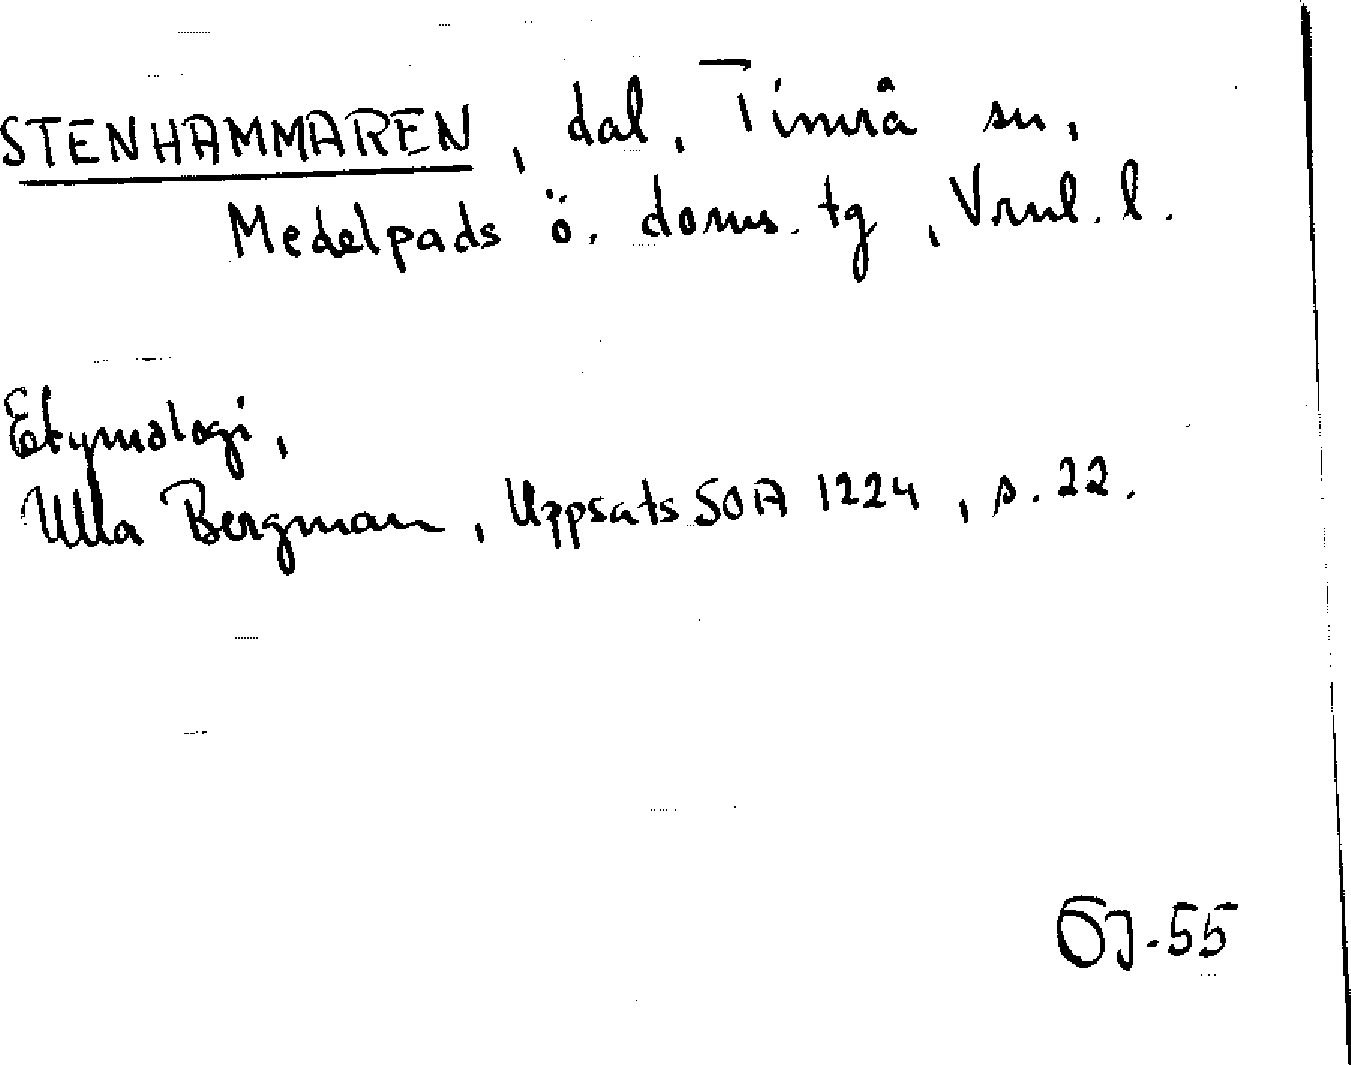 STENHAMMAREN, dal, Timrå sn,
Medelpads ö. doms. tg, Vrnl. l.
Etymologi,
Ulla Bergman, Uppsats SOA 1224, s. 22.
ÖJ-55